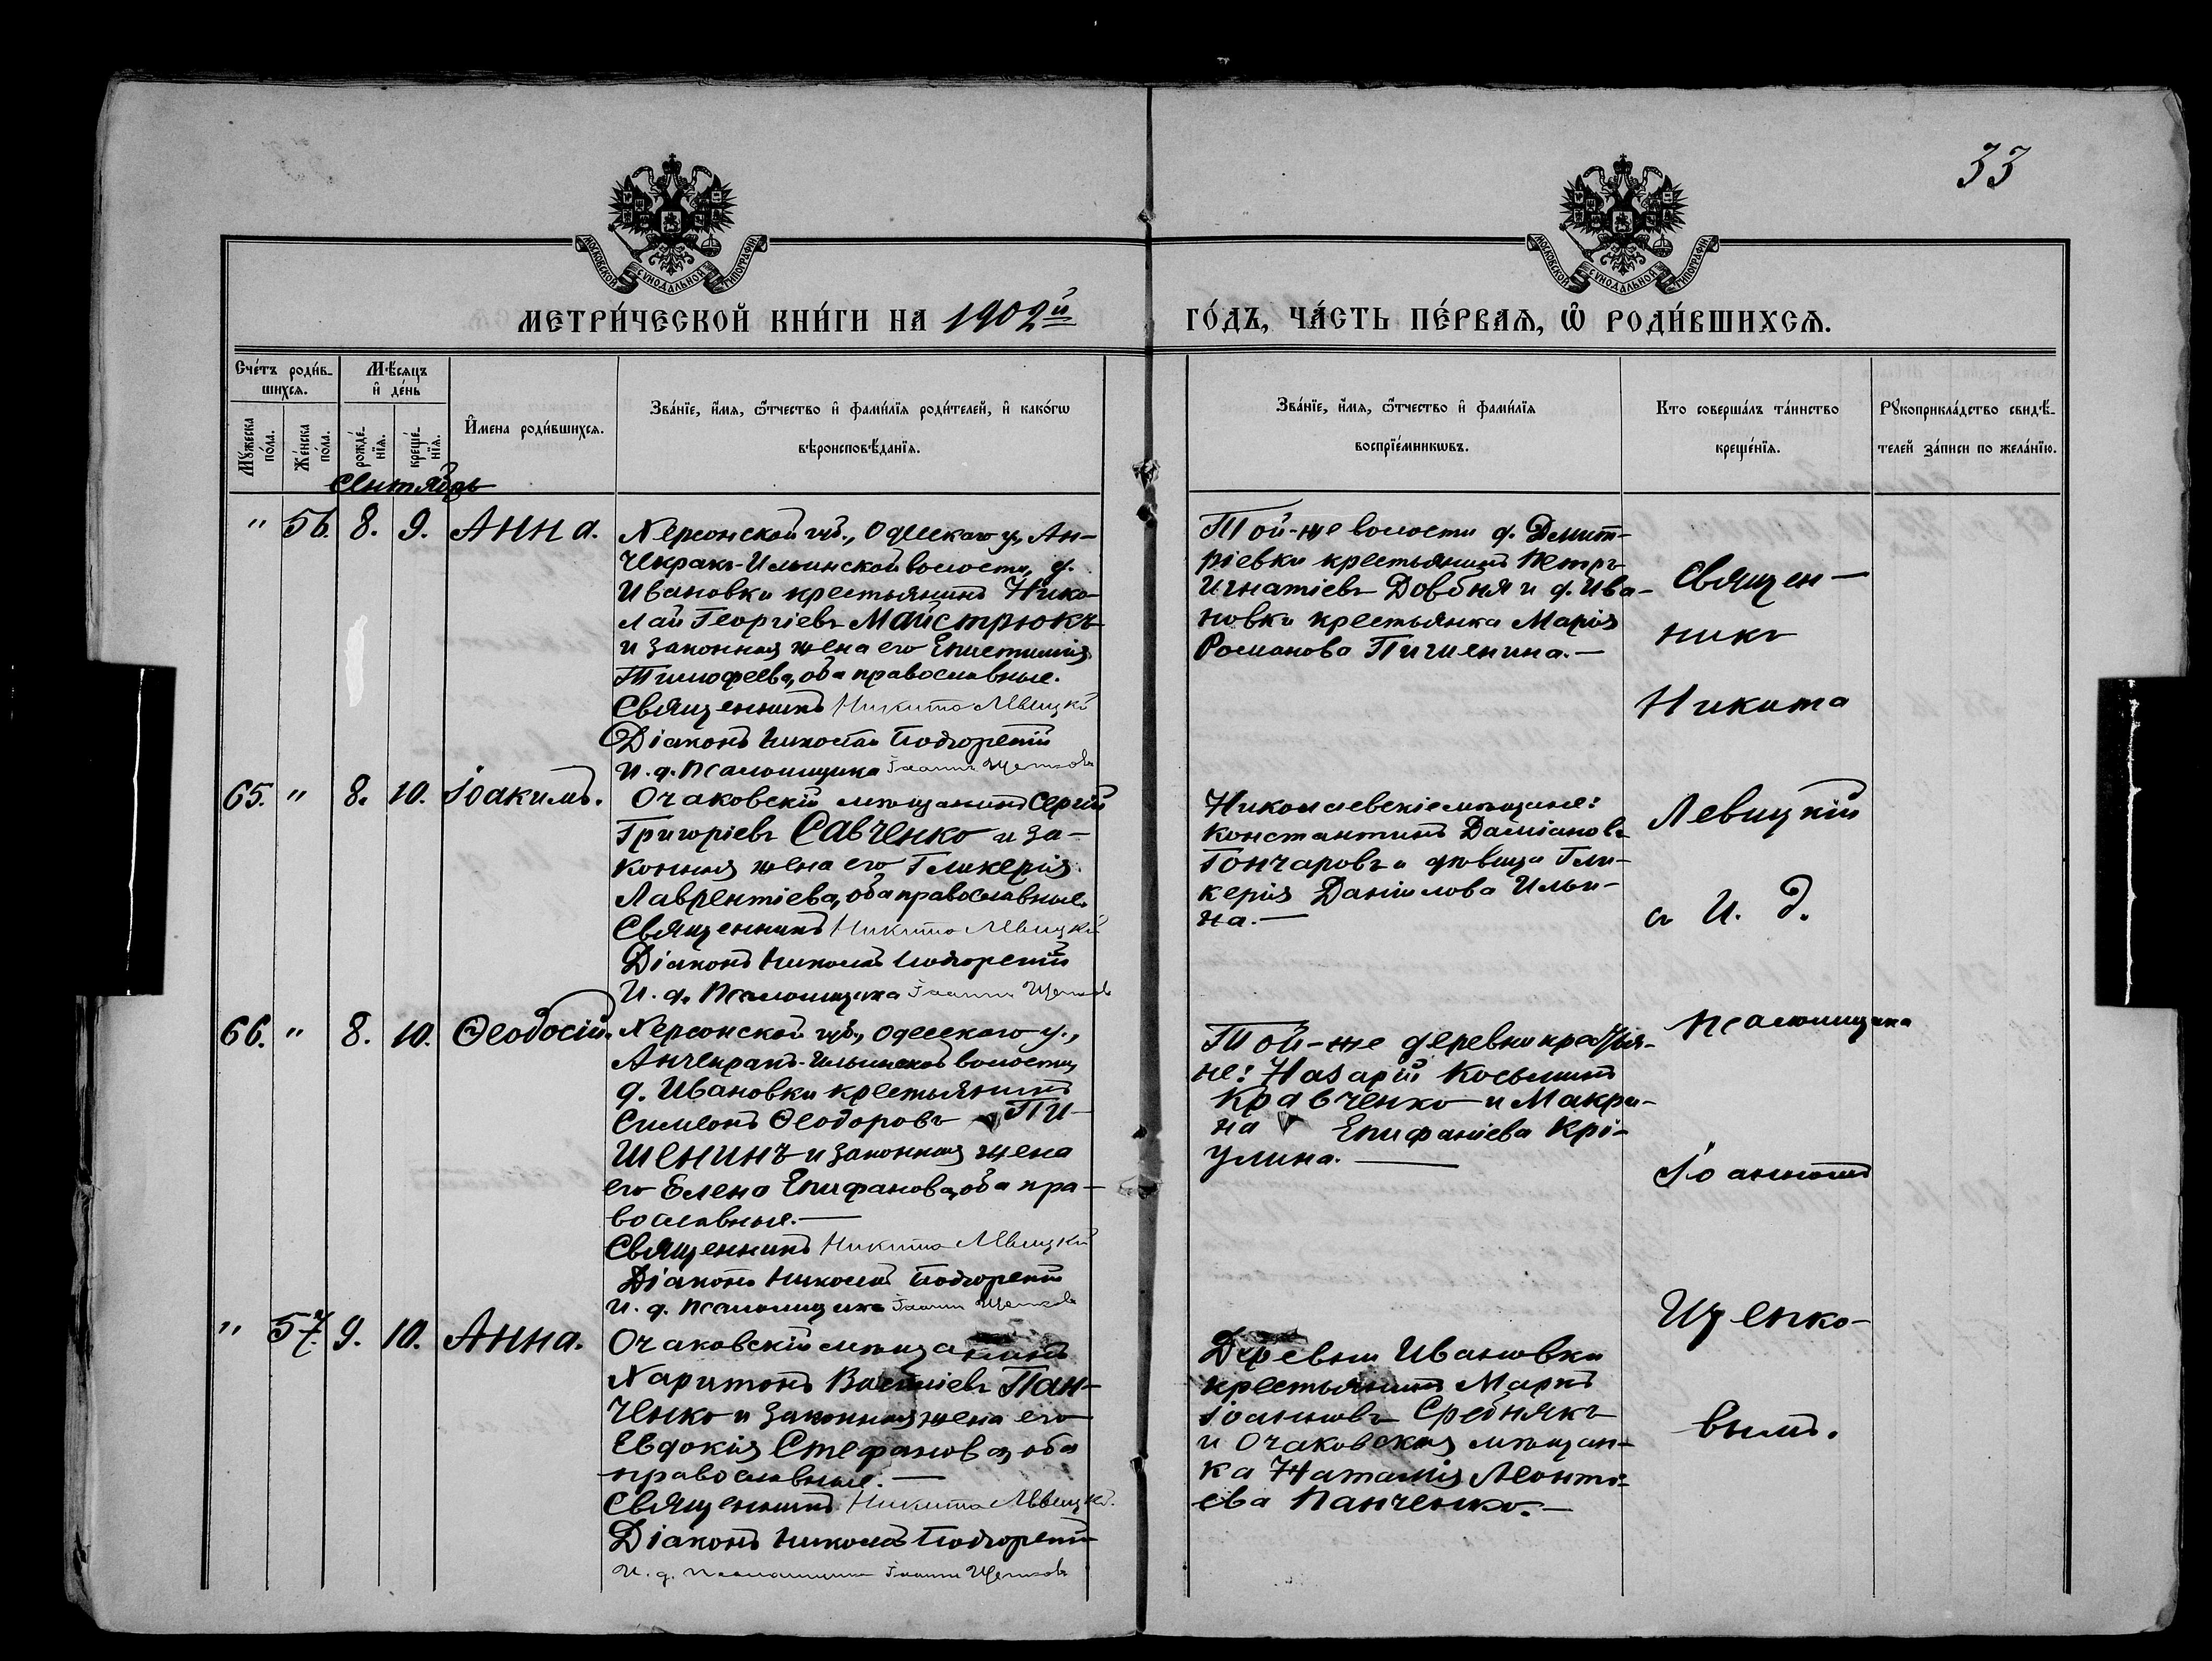 33
МОСКОВСКОЙ СѴНОДАЛЬНОЙ ТИПОГРАФІИ
МОСКОВСКОЙ СѴНОДАЛЬНОЙ ТИПОГРАФІИ
МЕТРИ́ЧЕСКОЙ КНИ́ГИ НА 1902й
ГО́ДЪ, ЧА́СТЬ ПЕ́РВАѦ, Ѡ҆ РОДИ́ВШИХСѦ.
Сче́тъ роди́в-
шихсѧ.
Мѣ́сѧцъ
и҆ де́нь
Мꙋ́жеска
по́ла.
Же́нска
по́ла.
рожде́-
нїѧ.
креще́-
нїѧ.
И҆мена роди́вшихсѧ.
Зва́нїе, и҆́мѧ, ѻ҆́тчество и҆ фами́лїѧ роди́телей, и҆ како́гѡ
вѣроисповѣ́данїѧ.
Зва́нїе, и҆́мѧ, ѻ҆́тчество и҆ фами́лїѧ
воспрїе́мникѡвъ.
Кто соверша́лъ та́инство
креще́нїѧ.
Рꙋкоприкла́дство свидѣ́-
телей за́писи по жела́нїю.
Сентябрь
" 56. 8. 9. Анна.
Херсонской губ., Одесскаго у., Ан-
чекракъ-Ильинской волости, д.
Ивановки крестьянинъ Нико-
лай Георгіевъ Майстрюкъ
и законная жена его Епистимія
Тимофеева, оба православные.
Священникъ Никита Левицкій
Діаконъ Николай Подгорецкій
И. д. Псаломщика Іоаннъ Щенковъ
Той-же волости д. Дмит-
ріевки крестьянинъ Петръ
Игнатіевъ Довбня и д. Ива-
новки крестьянка Марія
Романова Пишенина.—
65. " 8. 10. Іоакимъ.
Очаковскій мѣщанинъ Сергій
Григоріевъ Савченко и за-
конная жена его Гликерія
Лаврентіева, оба православные.
Священникъ Никита Левицкій
Діаконъ Николай Подгорецкій
И. д. Псаломщика Іоаннъ Щенковъ
Николаевскіе мѣщане:
Константинъ Даміановъ
Гончаровъ и дѣвица Гли-
керія Даніилова Ильи-
на.—
66. " 8. 10. Ѳеодосій.
Херсонской губ., Одесскаго у.,
Анчекракъ-Ильинской волости,
д. Ивановки крестьянинъ
Симеонъ Ѳеодоровъ Пи-
шенинъ и законная жена
его Елена Епифанова, оба пра-
вославные.—
Священникъ Никита Левицкій
Діаконъ Николай Подгорецкій
И. д. псаломщика Іоаннъ Щенковъ
Той-же деревни крестья-
не: Назарій Косьминъ
Кравченко и Макри-
на Епифаніева Крі-
улина.—
" 57. 9. 10. Анна.
Очаковскій мѣщанинъ
Харитонъ Васіліевъ Пан-
ченко и законная жена его
Евдокія Стефанова, оба
православные.—
Священникъ Никита Левицкій.
Діаконъ Николай Подгорецкій
И. д. псаломщика Іоаннъ Щенковъ
Деревни Ивановки
крестьянинъ Маркъ
Іоанновъ Среднякъ
и Очаковская мѣщан-
ка Наталія Леонті-
ева Панченко.—
Священ-
никъ
Никита
Левицкій
съ И. д.
псаломщика
Іоанномъ
Щенко-
вымъ.